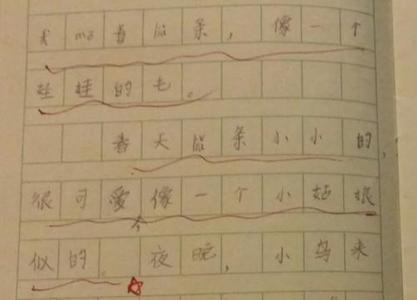 我 mō 条，像一个
娃娃的毛。
春天 条小小的，
很可爱像一个小姑娘
似的。夜晚，小鸟来